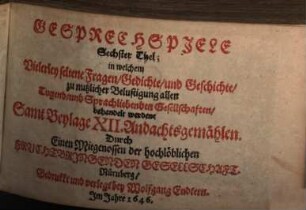 GESPRECHSPJELE
Sechster Theil;
in welchem
Vielerley seltene Fragen/Gedichte/und Geschichte/
zu nutzlicher Belustigung allen
Tugend und Sprachliebenden Gesellschaften/
behandelt werden:
Samt Beylage XII. Andachtsgemählen.
Durch
Einen Mitgenossen der hochlöblichen
FRUCHTBRJNGENDEN GESELLSCHAFT.
Nürnberg/
Gedrukkt und verlegt bey Wolfgang Endtern.
Im Jahre 1646.